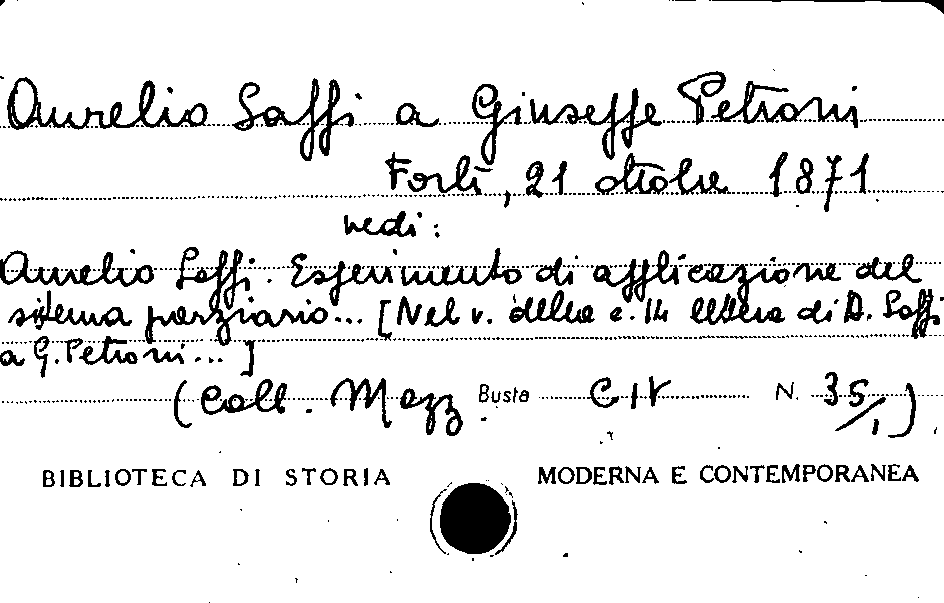 Aurelio Saffi a Giuseppe Petroni
Forlì, 21 ottobre 1871
vedi:
Aurelio Saffi. Esperimento di applicazione del
sistema parziario... [Nel v. della c. 14 lettera di A. Saffi
a G. Petroni...]
(Coll. Mazz. Busta CIV N. 35/1)
BIBLIOTECA DI STORIA MODERNA E CONTEMPORANEA